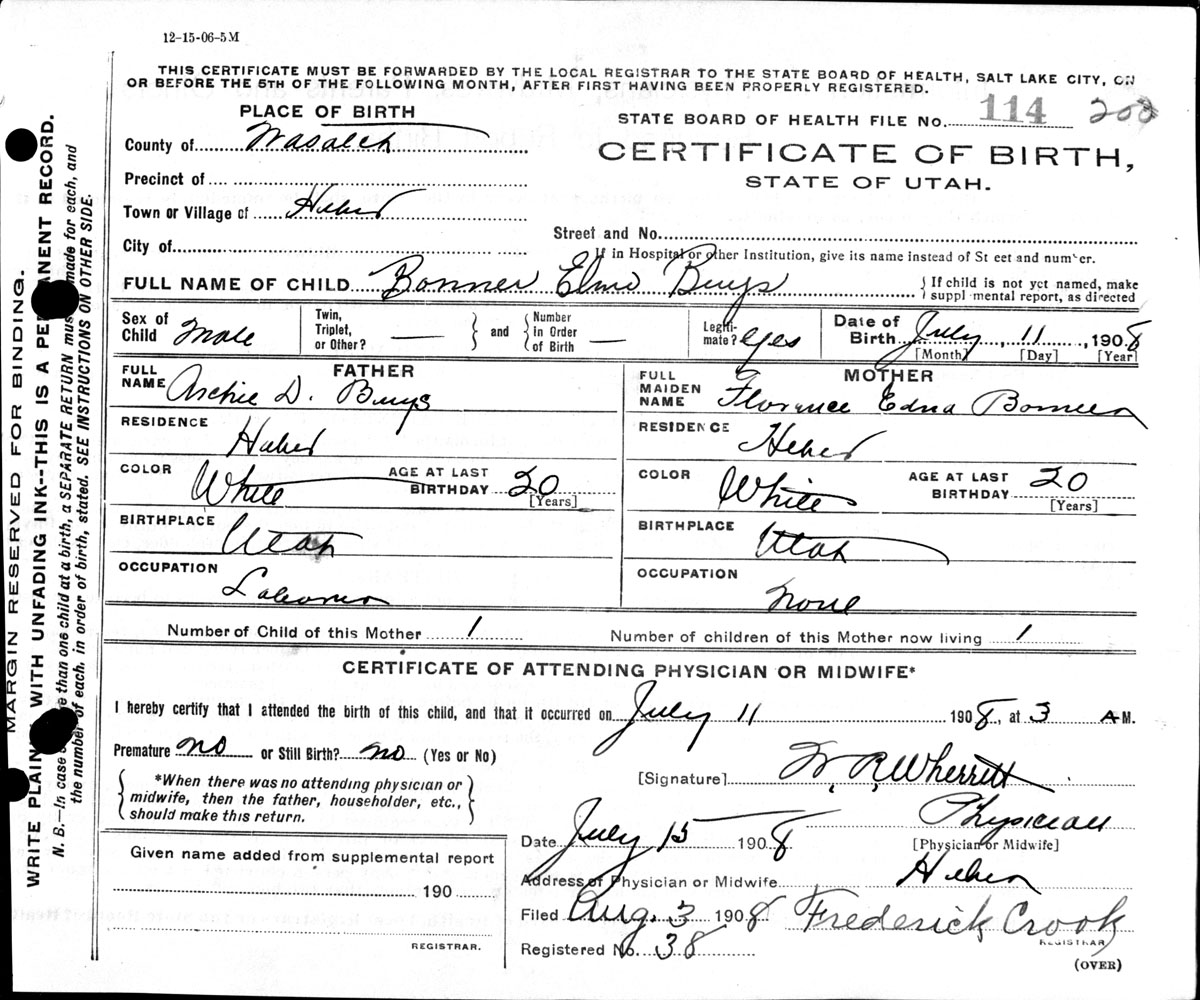 12-15-06-5M
THIS CERTIFICATE MUST BE FORWARDED BY THE LOCAL REGISTRAR TO THE STATE BOARD OF HEALTH, SALT LAKE CITY, ON
OR BEFORE THE 5TH OF THE FOLLOWING MONTH, AFTER FIRST HAVING BEEN PROPERLY REGISTERED.
PLACE OF BIRTH
STATE BOARD OF HEALTH FILE No. 114 208
County of Wasatch
CERTIFICATE OF BIRTH,
STATE OF UTAH.
Precinct of
Town or Village of Heber
Street and No.
City of
If in Hospital or other Institution, give its name instead of St eet and num er.
FULL NAME OF CHILD Bonner Elmo Buys
If child is not yet named, make
suppl mental report, as directed
Sex of Child Male
Twin, Triplet, or Other? —
and
Number in Order of Birth —
Legiti-mate? yes
Date of Birth July 11, 1908
[Month] [Day] [Year]
FATHER
FULL NAME Archie D. Buys
RESIDENCE Heber
COLOR White
AGE AT LAST BIRTHDAY 20
[Years]
BIRTHPLACE Utah
OCCUPATION Laborer
MOTHER
FULL MAIDEN NAME Florence Edna Bonner
RESIDENCE Heber
COLOR White
AGE AT LAST BIRTHDAY 20
[Years]
BIRTHPLACE Utah
OCCUPATION None
Number of Child of this Mother 1
Number of children of this Mother now living 1
CERTIFICATE OF ATTENDING PHYSICIAN OR MIDWIFE*
I hereby certify that I attended the birth of this child, and that it occurred on July 11 1908, at 3 A M.
Premature no or Still Birth? no (Yes or No)
*When there was no attending physician or
midwife, then the father, householder, etc.,
should make this return.
[Signature] W. R. Wherritt
Physician
[Physician or Midwife]
Date July 15 1908
Address of Physician or Midwife Heber
Filed Aug. 3 1908 Frederick Crook
REGISTRAR
Registered No. 38
(OVER)
Given name added from supplemental report
190
REGISTRAR.
MARGIN RESERVED FOR BINDING.
WRITE PLAIN WITH UNFADING INK--THIS IS A PE ANENT RECORD.
N. B.—In case e than one child at a birth, a SEPARATE RETURN mus made for each, and
the number of each, in order of birth, stated. SEE INSTRUCTIONS ON OTHER SIDE.